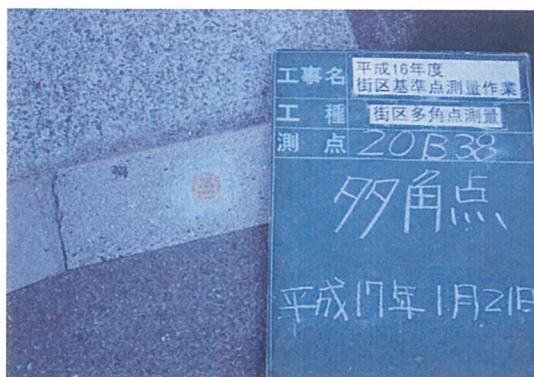 工事名 平成16年度
街区基準点測量作業
工種 街区多角点測量
測点 20B38
多角点
平成17年1月21日